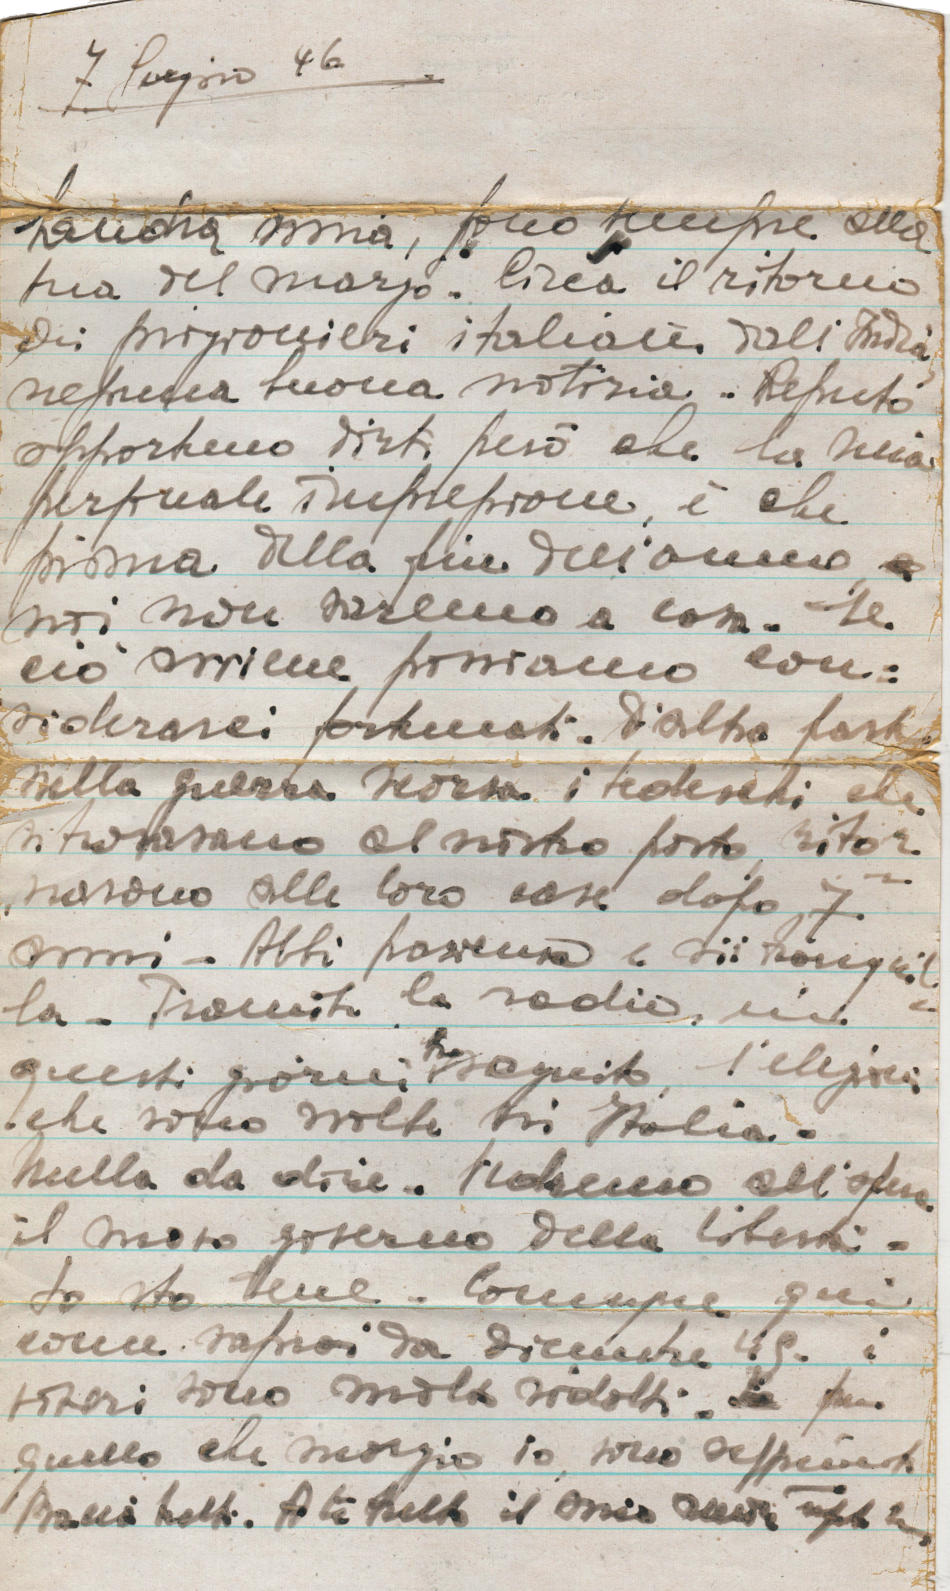 7 Giugno 46
Landra mia, sono sempre alla
tua del marzo. Circa il ritorno
dei prigionieri italiani dall'India
nessuna buona notizia. Reputo
opportuno dirti però che la mia
personale impressione, è che
prima della fine dell'anno,
noi non saremo a casa. Se
ciò avviene possiamo con=
siderarci fortunati. D'altra parte
nella guerra scorsa i tedeschi che
si trovavano al nostro posto, ritor
narono alle loro case dopo 7
anni - Abbi pazienza e sii tranquil
la - Tramite la radio, in
questi giorni ho seguito, l'elezioni
che sono svolte in Italia.
Nulla da dire. Vedremo all'opera
il nuovo governo della libertà.
Io sto bene. Comunque qui
come saprai da dicembre 45 i
viveri sono molto ridotti. per
quello che mangio io, sono sufficienti
Baci tutti. A te tutto il mio